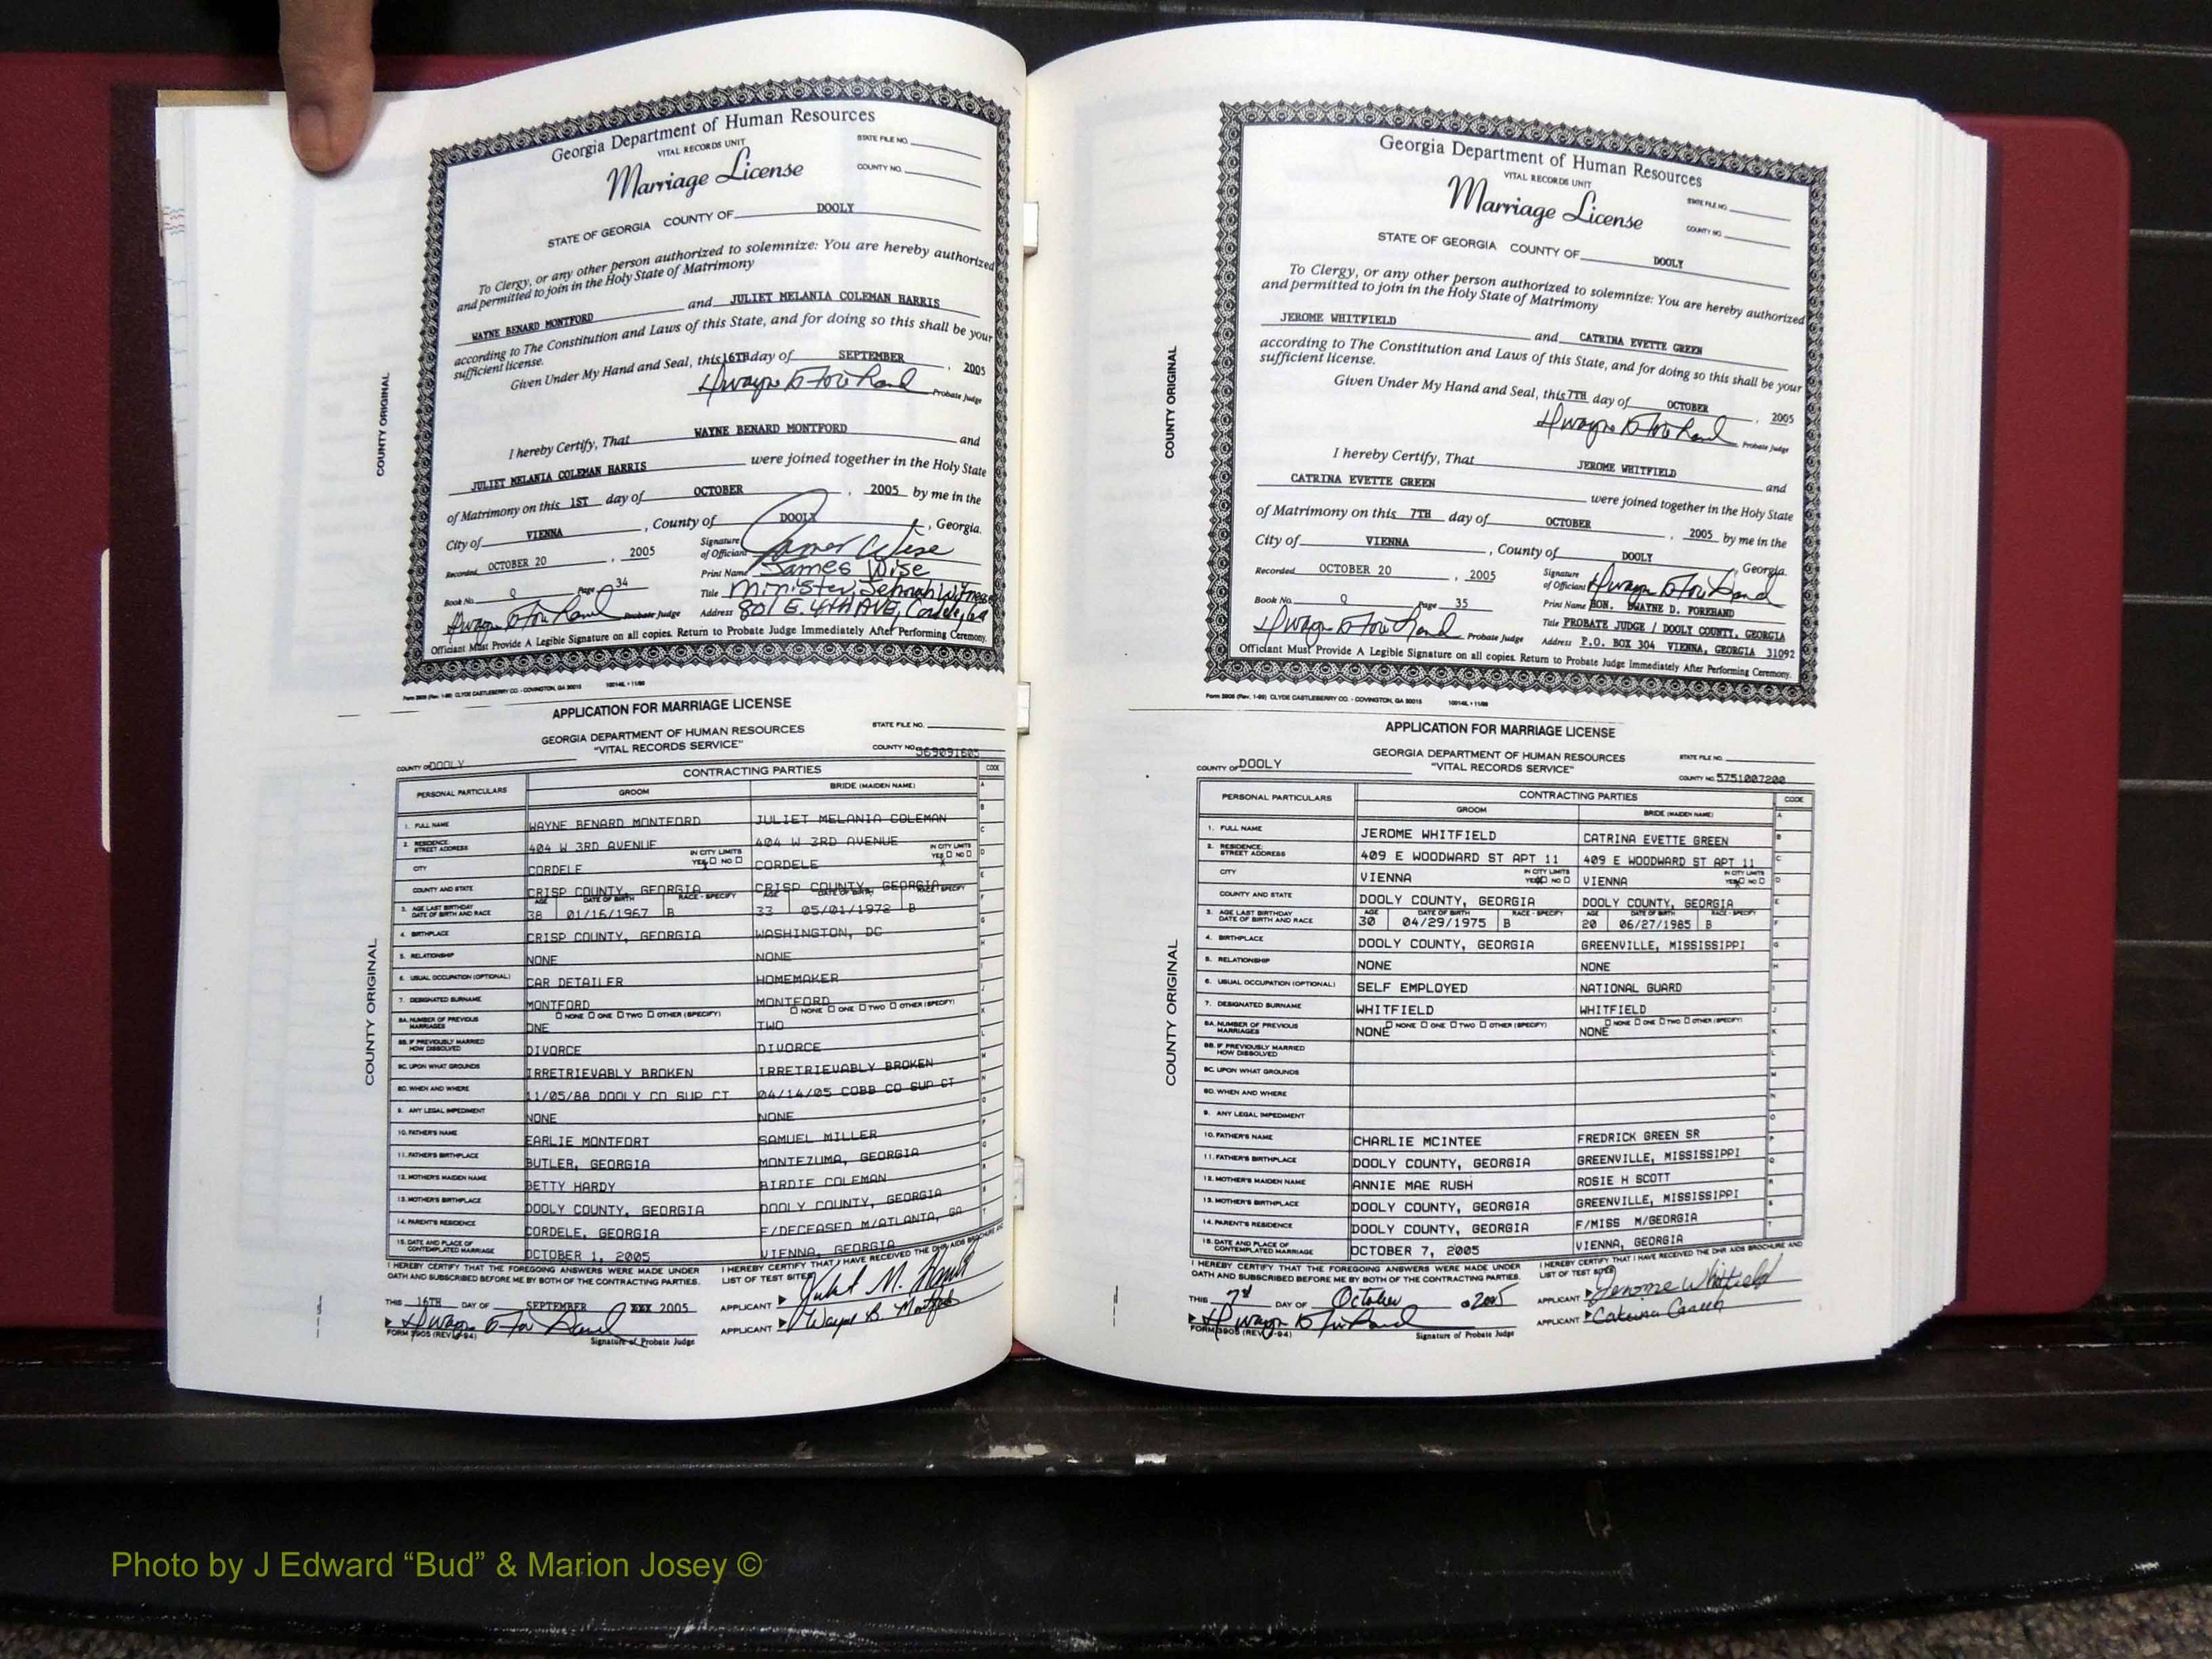 Georgia Department of Human Resources
VITAL RECORDS UNIT
STATE FILE NO.
Marriage License
COUNTY NO.
STATE OF GEORGIA COUNTY OF DOOLY
To Clergy, or any other person authorized to solemnize: You are hereby authorized
and permitted to join in the Holy State of Matrimony
WAYNE BENARD MONTFORD and JULIET MELANIA COLEMAN HARRIS
according to The Constitution and Laws of this State, and for doing so this shall be your
sufficient license.
Given Under My Hand and Seal, this 16TH day of SEPTEMBER, 2005
Probate Judge
I hereby Certify, That WAYNE BENARD MONTFORD and
JULIET MELANIA COLEMAN HARRIS were joined together in the Holy State
of Matrimony on this 1ST day of OCTOBER, 2005 by me in the
City of VIENNA, County of DOOLY, Georgia.
Recorded OCTOBER 20, 2005
Signature of Officiant James Wise
Print Name James Wise
Book No. Q Page 34
Title Minister, Jehovah Witness
Probate Judge
Address 801 E. 4th AVE, Cordele, Ga
Officiant Must Provide A Legible Signature on all copies. Return to Probate Judge Immediately After Performing Ceremony.
COUNTY ORIGINAL
Form 3905 (Rev. 1-89) CLYDE CASTLEBERRY CO. - COVINGTON, GA 30015
APPLICATION FOR MARRIAGE LICENSE
GEORGIA DEPARTMENT OF HUMAN RESOURCES
"VITAL RECORDS SERVICE"
STATE FILE NO.
COUNTY NO.
COUNTY OF DOOLY
PERSONAL PARTICULARS CONTRACTING PARTIES CODE
GROOM BRIDE (MAIDEN NAME)
1. FULL NAME WAYNE BENARD MONTFORD JULIET MELANIA COLEMAN
2. RESIDENCE: STREET ADDRESS 404 W 3RD AVENUE 404 W 3RD AVENUE
CITY CORDELE IN CITY LIMITS YES NO CORDELE IN CITY LIMITS YES NO
COUNTY AND STATE CRISP COUNTY, GEORGIA CRISP COUNTY, GEORGIA
3. AGE LAST BIRTHDAY DATE OF BIRTH AND RACE AGE 38 DATE OF BIRTH 01/16/1967 RACE - SPECIFY B AGE 33 DATE OF BIRTH 05/01/1972 RACE - SPECIFY B
4. BIRTHPLACE CRISP COUNTY, GEORGIA WASHINGTON, DC
5. RELATIONSHIP NONE NONE
6. USUAL OCCUPATION (OPTIONAL) CAR DETAILER HOMEMAKER
7. DESIGNATED SURNAME MONTFORD MONTFORD
8A. NUMBER OF PREVIOUS MARRIAGES NONE ONE TWO OTHER (SPECIFY) ONE NONE ONE TWO OTHER (SPECIFY) TWO
8B. IF PREVIOUSLY MARRIED HOW DISSOLVED DIVORCE DIVORCE
8C. UPON WHAT GROUNDS IRRETRIEVABLY BROKEN IRRETRIEVABLY BROKEN
8D. WHEN AND WHERE 11/05/88 DOOLY CO SUP CT 04/14/05 COBB CO SUP CT
9. ANY LEGAL IMPEDIMENT NONE NONE
10. FATHER'S NAME EARLIE MONTFORT SAMUEL MILLER
11. FATHER'S BIRTHPLACE BUTLER, GEORGIA MONTEZUMA, GEORGIA
12. MOTHER'S MAIDEN NAME BETTY HARDY BIRDIE COLEMAN
13. MOTHER'S BIRTHPLACE DOOLY COUNTY, GEORGIA DOOLY COUNTY, GEORGIA
14. PARENT'S RESIDENCE CORDELE, GEORGIA F/DECEASED M/ATLANTA, GA
15. DATE AND PLACE OF CONTEMPLATED MARRIAGE OCTOBER 1, 2005 VIENNA, GEORGIA
I HEREBY CERTIFY THAT THE FOREGOING ANSWERS WERE MADE UNDER
OATH AND SUBSCRIBED BEFORE ME BY BOTH OF THE CONTRACTING PARTIES.
I HEREBY CERTIFY THAT I HAVE RECEIVED THE DHR AIDS BROCHURE AND
LIST OF TEST SITES
THIS 16TH DAY OF SEPTEMBER 2005
APPLICANT Juliet M. Harris
APPLICANT Wayne B. Montford
FORM 3905 (REV.
Signature of Probate Judge
COUNTY ORIGINAL
Georgia Department of Human Resources
VITAL RECORDS UNIT
STATE FILE NO.
Marriage License
COUNTY NO.
STATE OF GEORGIA COUNTY OF DOOLY
To Clergy, or any other person authorized to solemnize: You are hereby authorized
and permitted to join in the Holy State of Matrimony
JEROME WHITFIELD and CATRINA EVETTE GREEN
according to The Constitution and Laws of this State, and for doing so this shall be your
sufficient license.
Given Under My Hand and Seal, this 7TH day of OCTOBER, 2005
Probate Judge
I hereby Certify, That JEROME WHITFIELD and
CATRINA EVETTE GREEN were joined together in the Holy State
of Matrimony on this 7TH day of OCTOBER, 2005 by me in the
City of VIENNA, County of DOOLY, Georgia.
Recorded OCTOBER 20, 2005
Signature of Officiant
Print Name HON. DWAYNE D. FOREHAND
Book No. Q Page 35
Title PROBATE JUDGE / DOOLY COUNTY, GEORGIA
Probate Judge
Address P.O. BOX 304 VIENNA, GEORGIA 31092
Officiant Must Provide A Legible Signature on all copies. Return to Probate Judge Immediately After Performing Ceremony.
COUNTY ORIGINAL
Form 3905 (Rev. 1-89) CLYDE CASTLEBERRY CO. - COVINGTON, GA 30015
APPLICATION FOR MARRIAGE LICENSE
GEORGIA DEPARTMENT OF HUMAN RESOURCES
"VITAL RECORDS SERVICE"
STATE FILE NO.
COUNTY NO. 5751007200
COUNTY OF DOOLY
PERSONAL PARTICULARS CONTRACTING PARTIES CODE
GROOM BRIDE (MAIDEN NAME)
1. FULL NAME JEROME WHITFIELD CATRINA EVETTE GREEN
2. RESIDENCE: STREET ADDRESS 409 E WOODWARD ST APT 11 409 E WOODWARD ST APT 11
CITY VIENNA IN CITY LIMITS YES NO VIENNA IN CITY LIMITS YES NO
COUNTY AND STATE DOOLY COUNTY, GEORGIA DOOLY COUNTY, GEORGIA
3. AGE LAST BIRTHDAY DATE OF BIRTH AND RACE AGE 30 DATE OF BIRTH 04/29/1975 RACE - SPECIFY B AGE 20 DATE OF BIRTH 06/27/1985 RACE - SPECIFY B
4. BIRTHPLACE DOOLY COUNTY, GEORGIA GREENVILLE, MISSISSIPPI
5. RELATIONSHIP NONE NONE
6. USUAL OCCUPATION (OPTIONAL) SELF EMPLOYED NATIONAL GUARD
7. DESIGNATED SURNAME WHITFIELD WHITFIELD
8A. NUMBER OF PREVIOUS MARRIAGES NONE NONE ONE TWO OTHER (SPECIFY) NONE NONE ONE TWO OTHER (SPECIFY)
8B. IF PREVIOUSLY MARRIED HOW DISSOLVED
8C. UPON WHAT GROUNDS
8D. WHEN AND WHERE
9. ANY LEGAL IMPEDIMENT
10. FATHER'S NAME CHARLIE MCINTEE FREDRICK GREEN SR
11. FATHER'S BIRTHPLACE DOOLY COUNTY, GEORGIA GREENVILLE, MISSISSIPPI
12. MOTHER'S MAIDEN NAME ANNIE MAE RUSH ROSIE H SCOTT
13. MOTHER'S BIRTHPLACE DOOLY COUNTY, GEORGIA GREENVILLE, MISSISSIPPI
14. PARENT'S RESIDENCE DOOLY COUNTY, GEORGIA F/MISS M/GEORGIA
15. DATE AND PLACE OF CONTEMPLATED MARRIAGE OCTOBER 7, 2005 VIENNA, GEORGIA
I HEREBY CERTIFY THAT THE FOREGOING ANSWERS WERE MADE UNDER
OATH AND SUBSCRIBED BEFORE ME BY BOTH OF THE CONTRACTING PARTIES.
I HEREBY CERTIFY THAT I HAVE RECEIVED THE DHR AIDS BROCHURE AND
LIST OF TEST SITES
THIS DAY OF October 2005
APPLICANT Jerome Whitfield
APPLICANT Catrina Green
FORM 3905 (REV.
Signature of Probate Judge
COUNTY ORIGINAL
Photo by J Edward “Bud” & Marion Josey ©